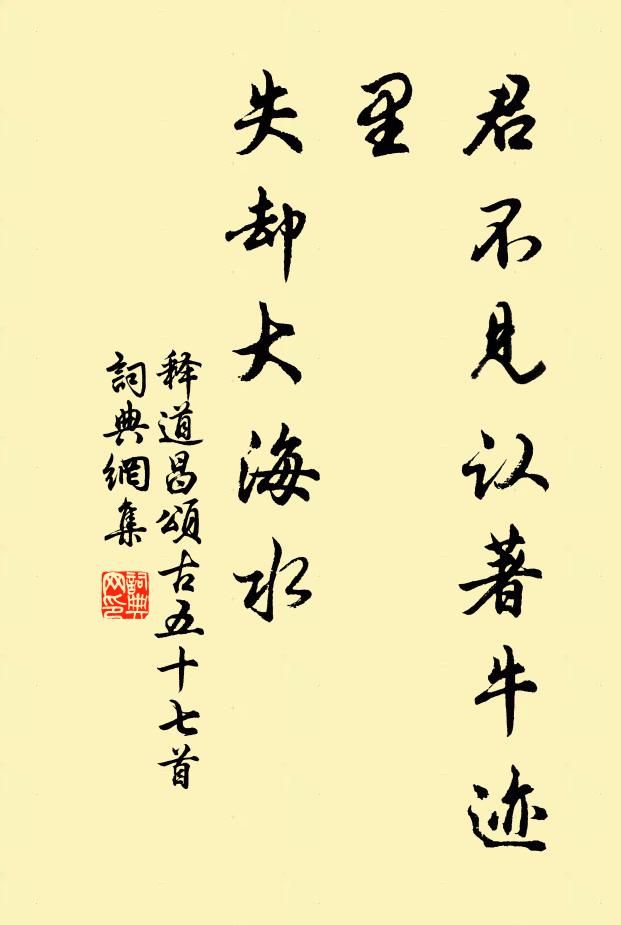 君不见认著牛迹
里
失却大海水
释道昌颂古五十七首
词典網集
词典
网印